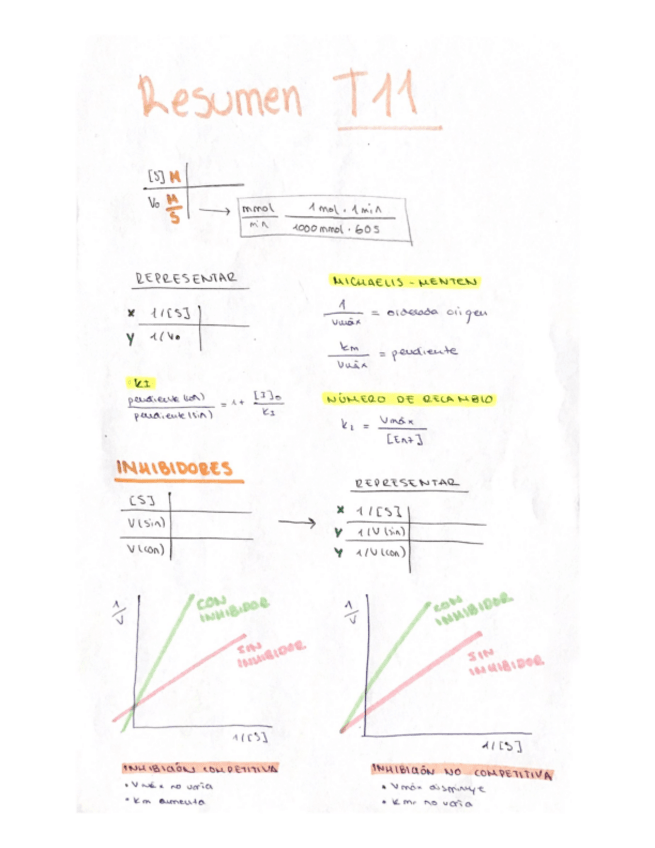 Resumen T11
[S] M
Vo M/S → mmol/min 1 mol · 1 min / 1000 mmol · 60 s
REPRESENTAR
x 1/[S]
y 1/Vo
MICHAELIS-MENTEN
1/Vmáx = ordenada origen
km/Vmáx = pendiente
KI
pendiente (con)/pendiente (sin) = 1 + [I]o/KI
NÚMERO DE RECAMBIO
k₂ = Vmáx/[EnzT]
INHIBIDORES
[S]
V(sin)
V(con)
REPRESENTAR
x 1/[S]
y 1/V(sin)
y 1/V(con)
1/V
CON
INHIBIDOR
SIN
INHIBIDOR
1/[S]
INHIBICIÓN COMPETITIVA
• Vmáx no varia
• Km aumenta
1/V
CON
INHIBIDOR
SIN
INHIBIDOR
1/[S]
INHIBICIÓN NO COMPETITIVA
• Vmáx disminuye
• Km no varia